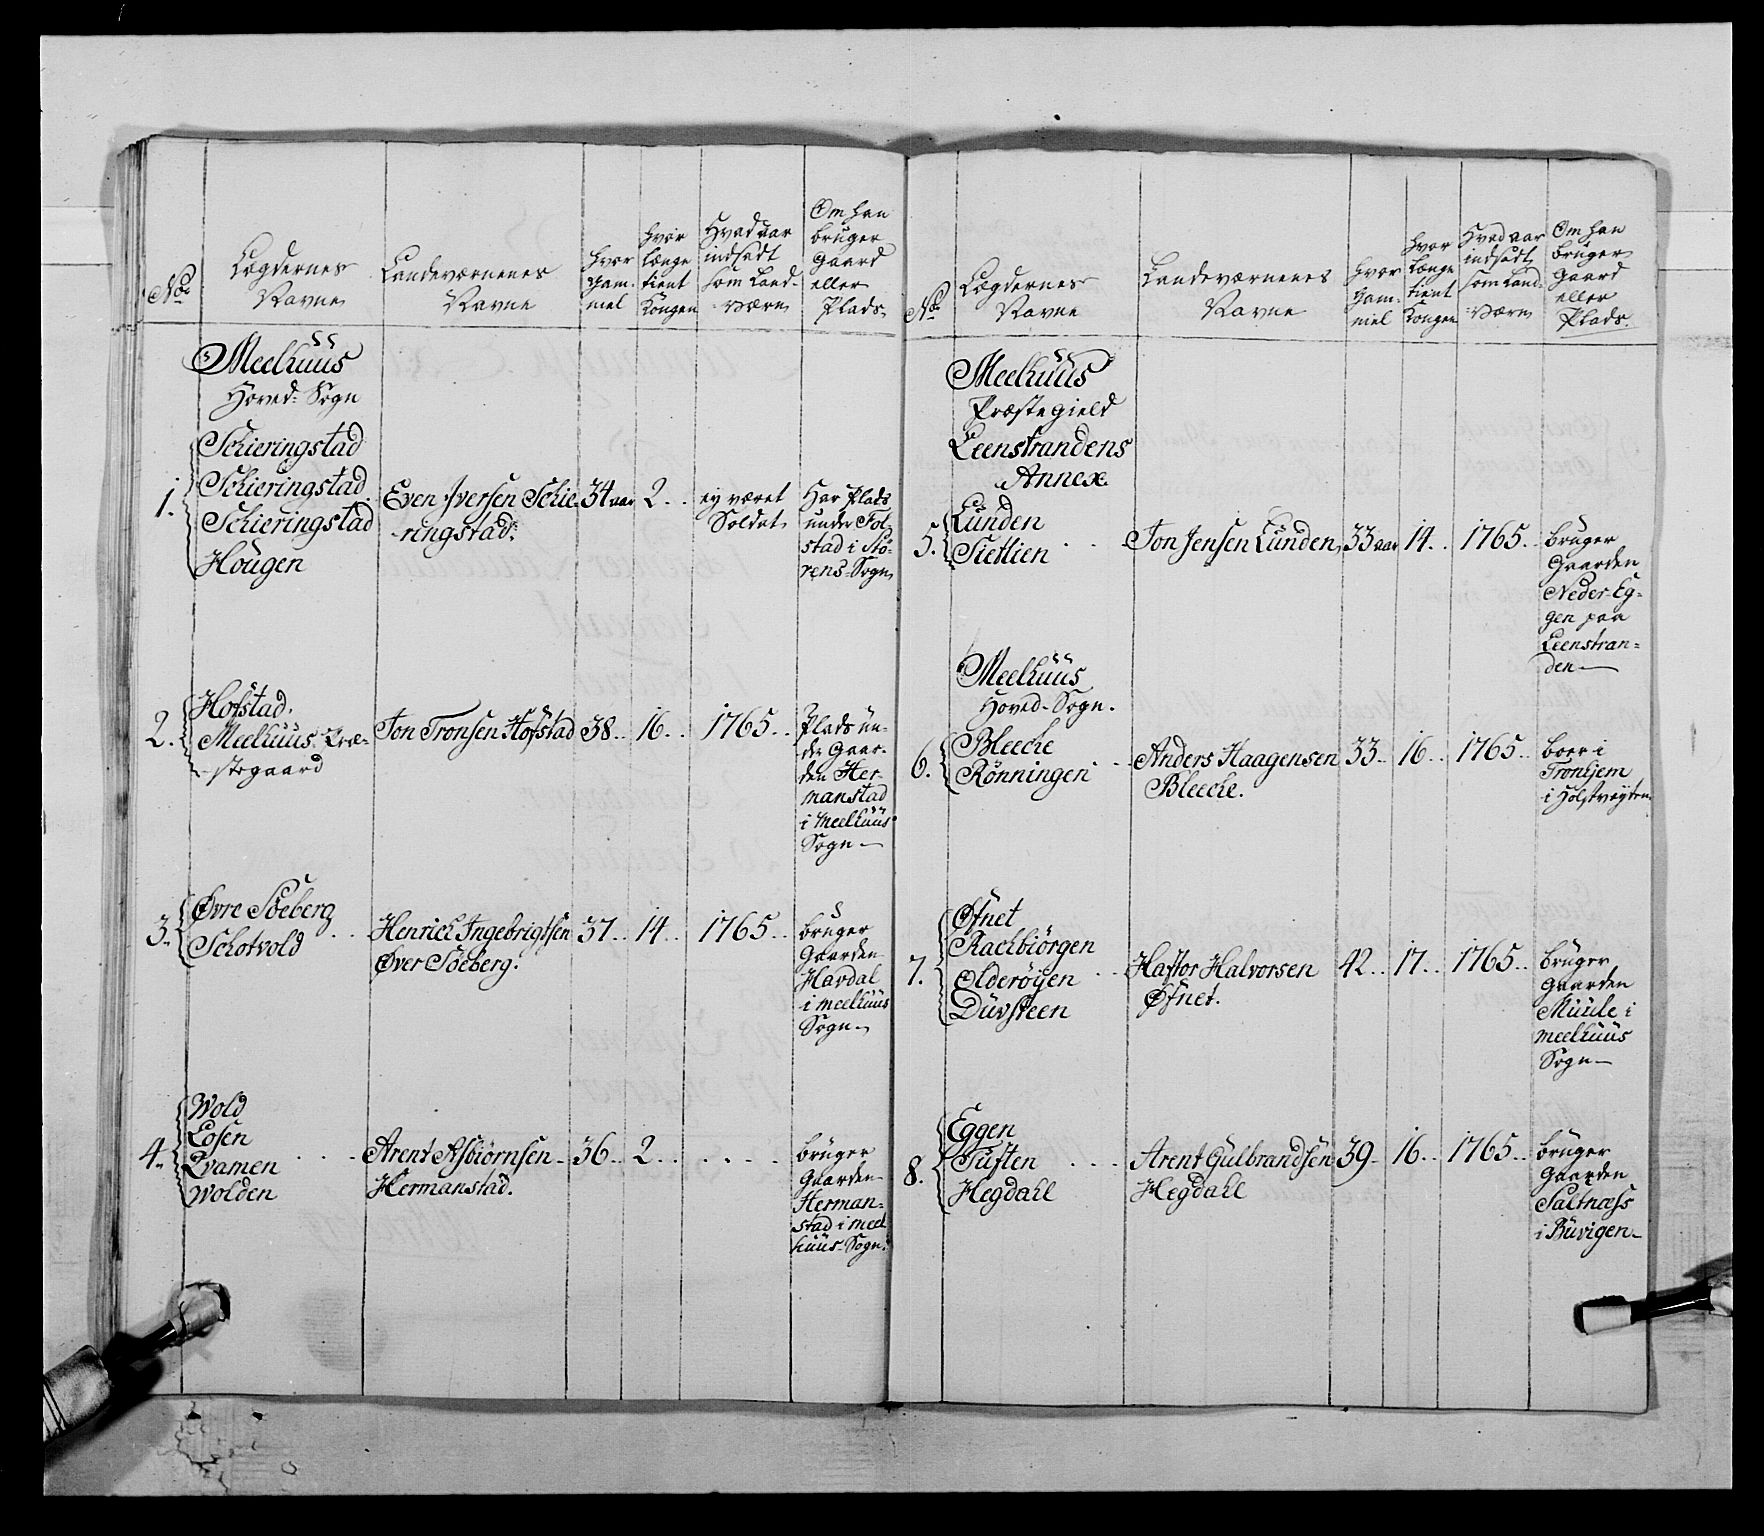 No
Lægdernes
Navne
Landeværnenes
Navne
hvor
gam-
mel
hvor
længe
tient
Kongen
Hvad aar
indsadt
som Land-
-værn
Om han
bruger
Gaard
eller
Plads
Meelhüüs
Hoved-Sogn
1.
Schieringstad
Schieringstad
Schieringstad
Hougen
Even Iversen Schie-
-ringstad.
34 aar
2..
ey været
Soldat
Har Plads
under Fol-
stad i Stö-
rens-Sogn
2.
Hofstad.
Meelhüüs Præ-
-stegaard
Jon Tronsen Hofstad
38..
16..
1765..
Plads ün-
der Gaar-
den Her-
manstad
i Meelhüüs
Sogn-
3.
Øvre Söeberg
Schotvold
Henrich Ingebrigtsen
Øver Söeberg.
37..
14..
1765..
brüger
Gaarden
Havdal
i Meelhüüs
Sogn-
4.
Wold
Losen
Qvamen
Wolden
Arent Asbiörnsen
Hermanstad.
36..
2..
brüger
Gaarden
Herman-
stad i Meel
hüüs-Sogn.
No
Lægdernes
Navne
Landeværnenes
Navne
hvor
gam-
mel
hvor
længe
tient
Kongen
Hvad aar
indsadt
som Land-
-værn
Om han
bruger
Gaard
eller
Plads.
Meelhüüs
Præstegield
Leenstrandens
Annex.
5.
Lünden
Sietlien
Jon Jensen Lünden
33 aar
14..
1765..
brüger
Gaarden
Neder-Eg-
gen paa
Leenstran-
den-
Meelhüüs
Hoved-Sogn.
6.
Bleeche
Rönningen
Anders Haagensen
Bleeche.
33..
16..
1765..
boer i
Tronhjem
i Holstveyten
7.
Øfnet
Rachbiörgen
Olderöyen
Düvsteen
Haftor Halvorsen
Øfnet.
42..
17..
1765..
brüger
Gaarden
Müüle i
Meelhüüs
Sogn-
8.
Eggen
Tuften
Hegdahl
Arent Gulbrandsen
Hegdahl
39-
16..
1765..
brüger
Gaarden
Saltnæss
i Büvigen-